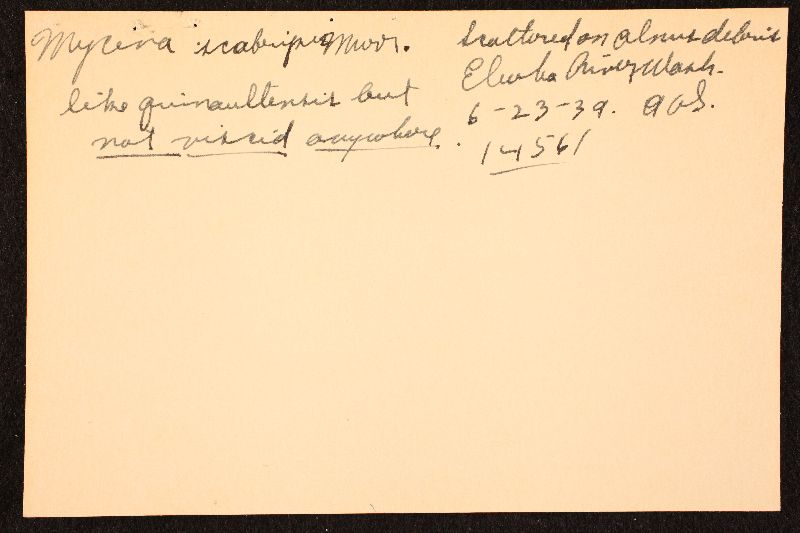 Mycena scabripes Murr.
like quinaultensis but
not viscid anywhere.
Scattered on alnus debris
Elwha River Wash.
6-23-39. AHS.
14561